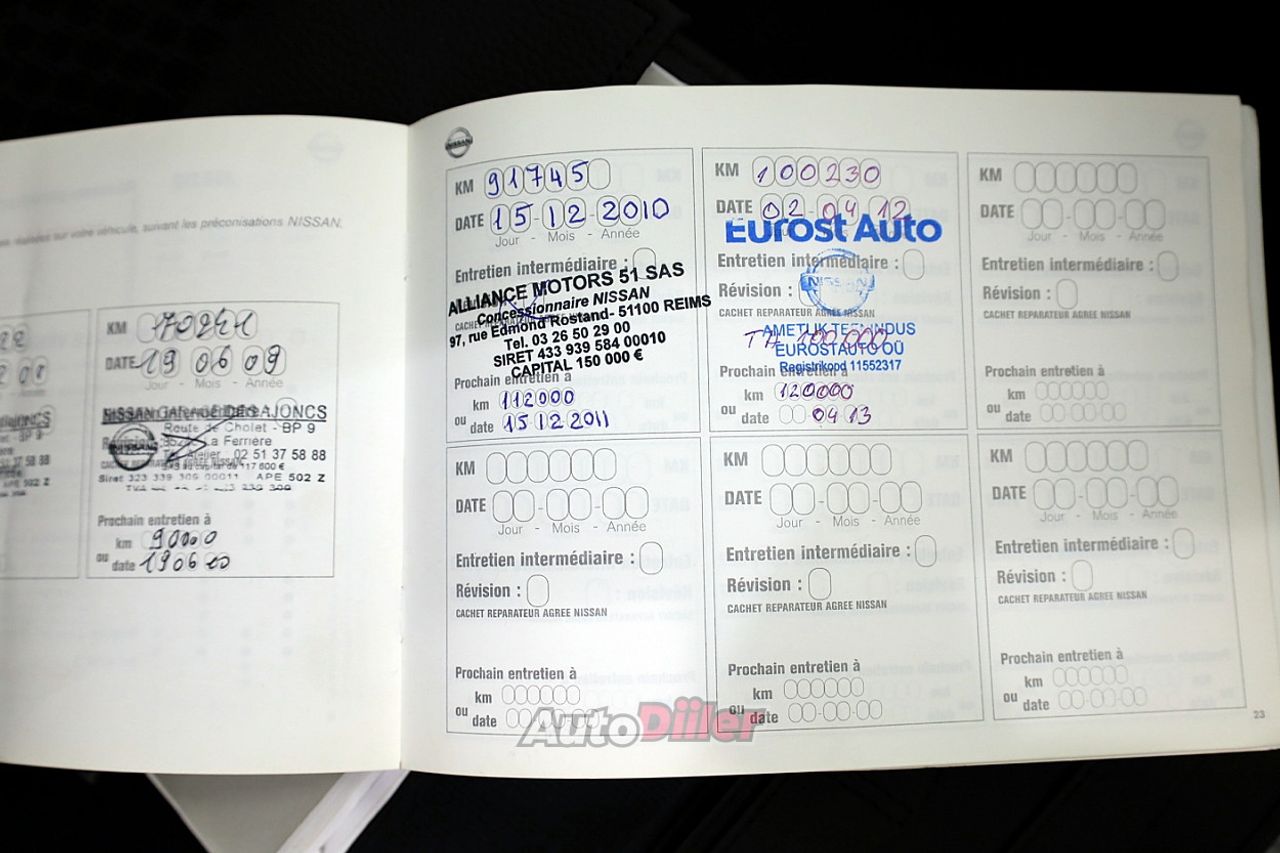 réalisées sur votre véhicule, suivant les préconisations NISSAN.
KM 70241
DATE 19 06 09
Jour - Mois - Année
NISSAN GARAGE DES AJONCS
Route de Cholet - BP 9
La Ferrière
Tél. Atelier : 02 51 37 58 88
CACHET REPARATEUR AGREE NISSAN
APE 502 Z
Prochain entretien à
km 90000
ou date 19 06 10
NISSAN
KM 91745
DATE 15-12-2010
Jour - Mois - Année
Entretien intermédiaire :
ALLIANCE MOTORS 51 SAS
Concessionnaire NISSAN
97, rue Edmond Rostand- 51100 REIMS
Tel. 03 26 50 29 00
SIRET 433 939 584 00010
CAPITAL 150 000 €
Prochain entretien à
km 112000
ou date 15 12 2011
KM 100230
DATE 02-04-12
Eurost Auto
Entretien intermédiaire :
NISSAN
Révision :
CACHET REPARATEUR AGREE NISSAN
AMETLIK TEENINDUS
EUROSTAUTO OÜ
Registrikood 11552317
Prochain entretien à
km 120000
ou date 04 13
KM
DATE
Jour - Mois - Année
Entretien intermédiaire :
Révision :
CACHET REPARATEUR AGREE NISSAN
Prochain entretien à
km
ou date
KM
DATE
Jour - Mois - Année
Entretien intermédiaire :
Révision :
CACHET REPARATEUR AGREE NISSAN
Prochain entretien à
km
ou date
KM
DATE
Jour - Mois - Année
Entretien intermédiaire :
Révision :
CACHET REPARATEUR AGREE NISSAN
Prochain entretien à
km
ou date
KM
DATE
Jour - Mois - Année
Entretien intermédiaire :
Révision :
CACHET REPARATEUR AGREE NISSAN
Prochain entretien à
km
ou date
23
AutoDiiler